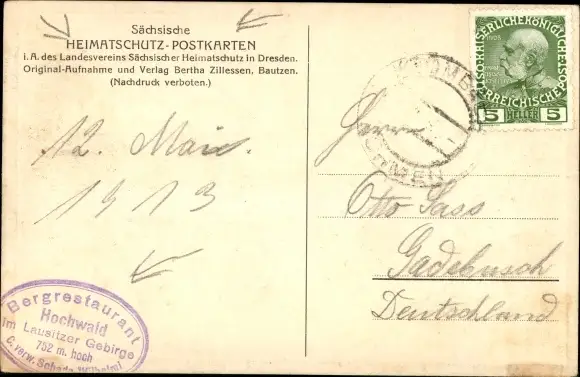 Sächsische
HEIMATSCHUTZ-POSTKARTEN
i. A. des Landesvereins Sächsischer Heimatschutz in Dresden.
Original-Aufnahme und Verlag Bertha Zillessen, Bautzen.
(Nachdruck verboten.)
KAISERLICHE KÖNIGLICHE
ÖSTERREICHISCHE
5 HELLER 5
Herrn
12. Mai.
Otto Sass
1913
Gadebusch
Deutschland
Bergrestaurant
Hochwald
im Lausitzer Gebirge
752 m. hoch
C. verw. Schade